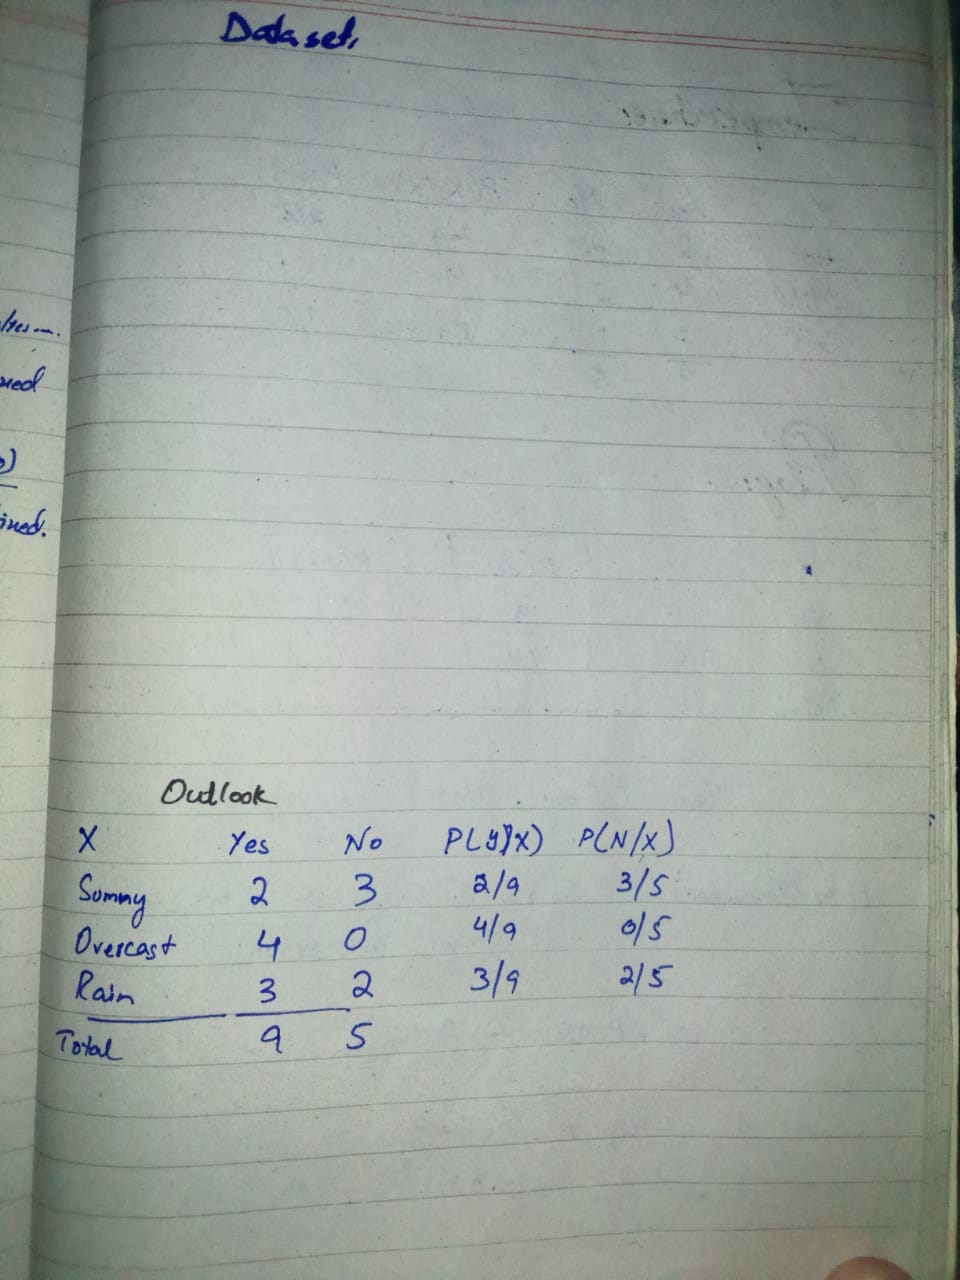 Dataset,
ned
ined.
Outlook
X Yes No P(Y/X) P(N/X)
Sunny 2 3 2/9 3/5
Overcast 4 0 4/9 0/5
Rain 3 2 3/9 2/5
Total 9 5